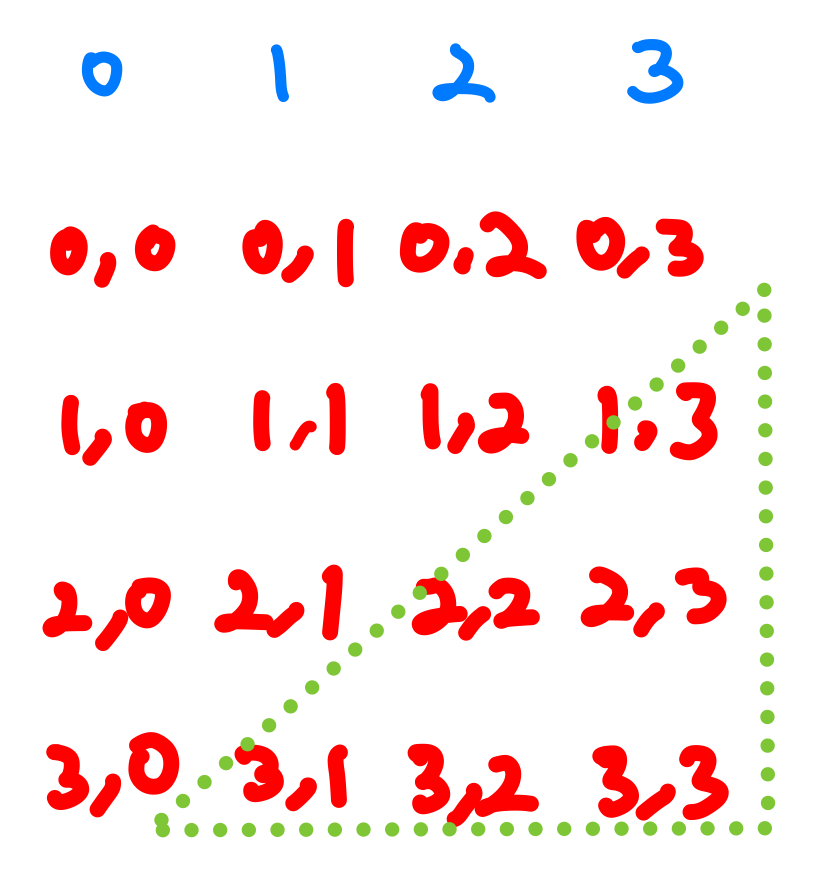 0 1 2 3
0,0 0,1 0,2 0,3
1,0 1,1 1,2 1,3
2,0 2,1 2,2 2,3
3,0 3,1 3,2 3,3